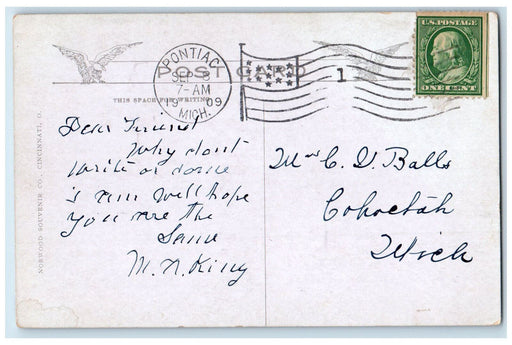 PONTIAC
SEP 8
7-AM
1909
MICH.
1
U.S. POSTAGE
ONE CENT
POST CARD
THIS SPACE FOR WRITING
NORWOOD SOUVENIR CO. CINCINNATI, O.
Dear Friend
Why dont
write or come
is am well hope
you are the
Same
M. A. King
Mrs C. D. Balls
Cohoctah
Mich